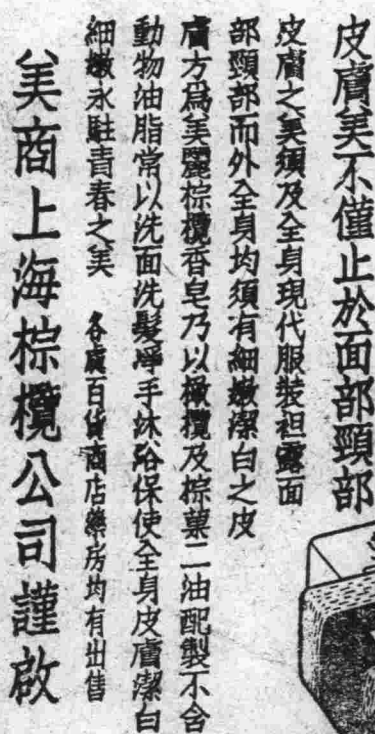 皮膚美不僅止於面部頸部
皮膚之美須及全身現代服裝袒露面
部頸部而外全身均須有細嫩潔白之皮
膚方為美麗棕欖香皂乃以橄欖及棕菓二油配製不含
動物油脂常以洗面洗髮淨手沐浴保使全身皮膚潔白
細嫩永駐青春之美
各處百貨商店藥房均有出售
美商上海棕欖公司謹啟